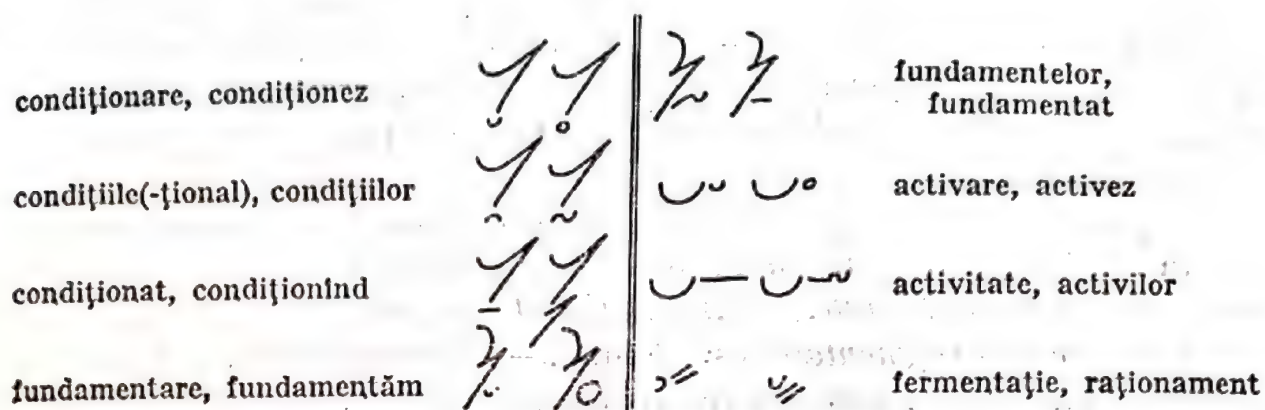 condiţionare, condiţionez
condiţiile(-ţional), condiţiilor
condiţionat, condiţionînd
fundamentare, fundamentăm
fundamentelor,
fundamentat
activare, activez
activitate, activilor
fermentaţie, raţionament